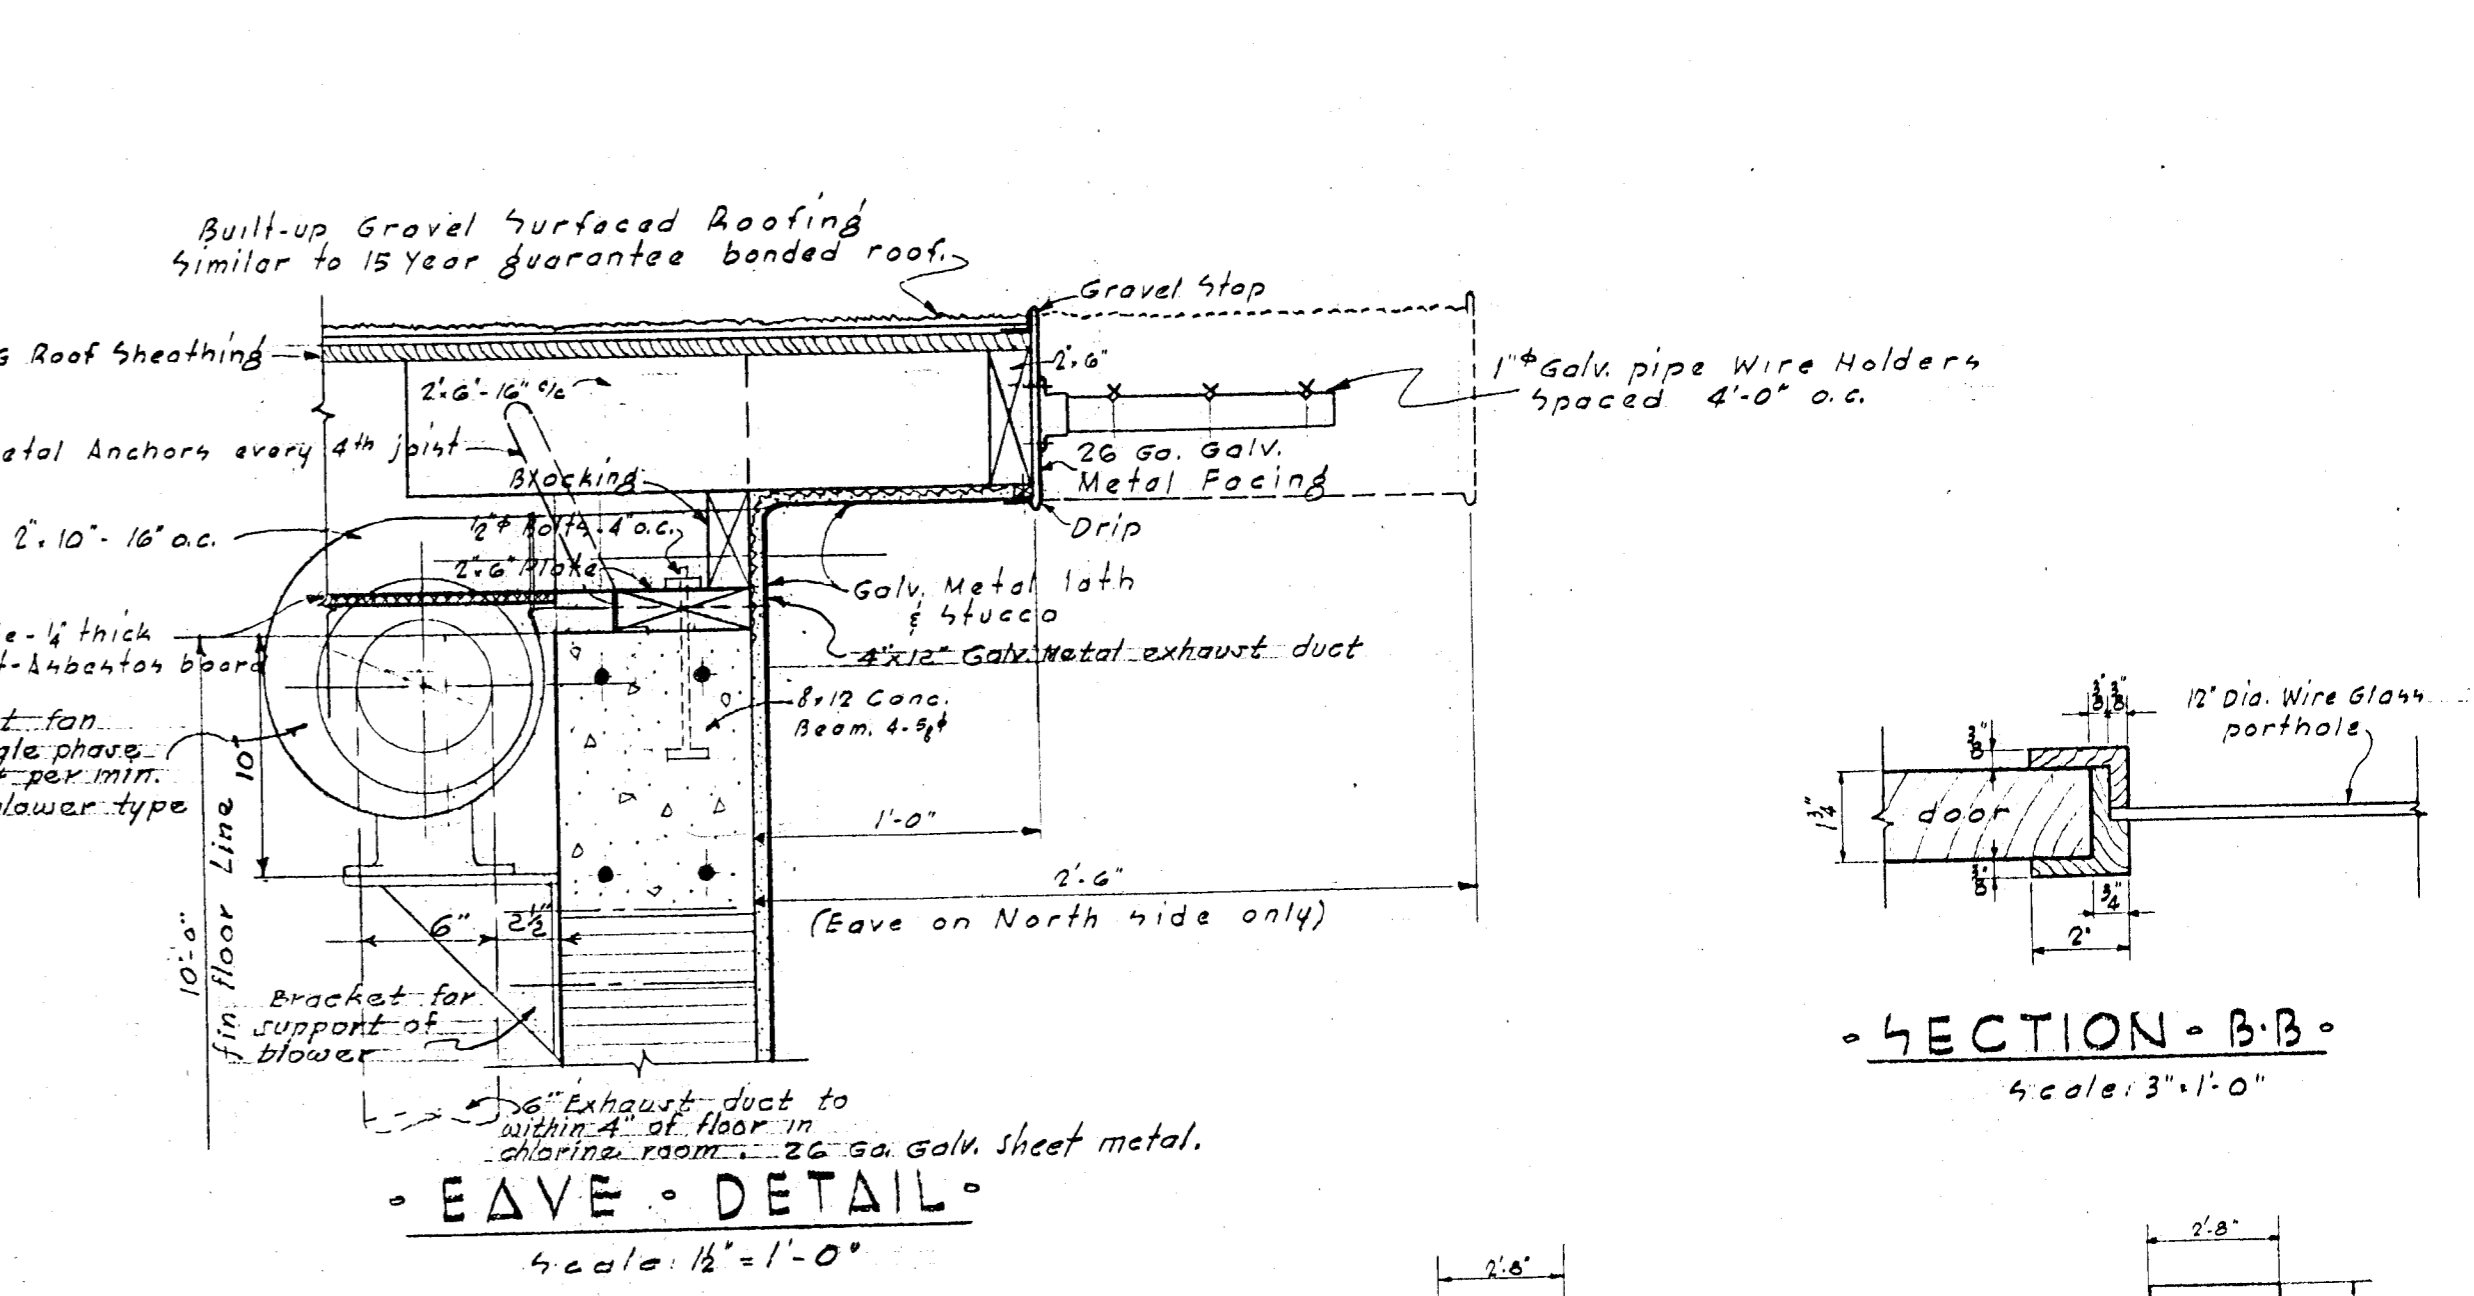 Built-up Gravel Surfaced Roofing
Similar to 15 Year guarantee bonded roof.
Gravel Stop
G Roof Sheathing
2"x6"
2"x6"-16" c/c
1"ϕ Galv. pipe Wire Holders
Spaced 4'-0" o.c.
etal Anchors every 4th joist
26 Ga. Galv.
Metal Facing
Blocking
2"x10"-16" o.c.
½"ϕ Bolts-4" o.c.
Drip
2"x6" Plate
Galv. Metal lath
& Stucco
e-¼" thick
t-Asbestos board
4"x12" Galv. Metal exhaust duct
8x12 Conc.
Beam. 4-⅝ϕ
t fan
gle phase
t per min.
lower type
10"
1'-0"
2'-6"
(Eave on North side only)
6"
2½"
10'-0"
fin floor Line
Bracket for
support of
blower
6" Exhaust duct to
within 4" of floor in
chlorine room. 26 Ga. Galv. sheet metal.
•EAVE•DETAIL•
Scale: 1½"=1'-0"
⅜" ⅜"
12" Dia. Wire Glass
porthole
⅜"
1¾"
door
⅜"
¾"
2"
•SECTION•B-B•
Scale: 3"=1'-0"
2'-8"
2'-8"